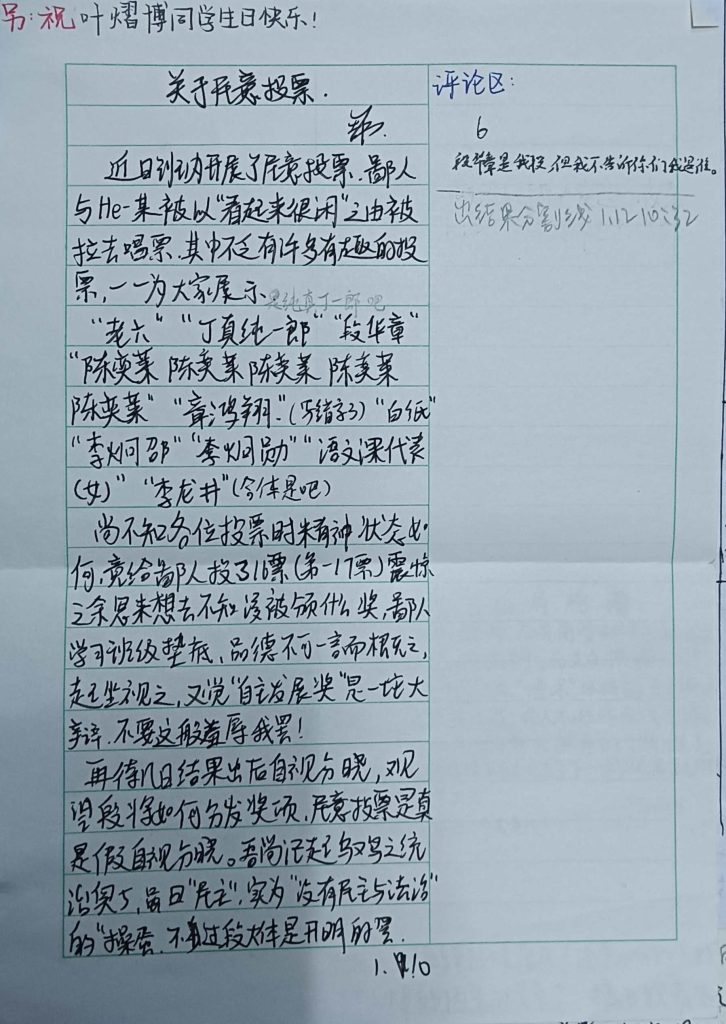 另:祝叶熠博同学生日快乐!
关于民意投票.
近日班内开展了民意投票.鄙人
与He-某被以“看起来很闲”之由被
拉去唱票.其中不乏有许多有趣的投
票,一一为大家展示
是纯真丁一郎吧
“老六” “丁真纯一郎” “段华章”
“陈奕莱 陈奕莱 陈奕莱 陈奕莱
陈奕莱” “章鸿翔”(写错字了) “白纸”
“李炯邵” “李炯勋” “语文课代表
(女)” “李龙井”(今体是吧)
尚不知各位投票时精神状态如
何,竟给鄙人投了16票(第一17票)震惊
之余思来想去不知没被颁什么奖,鄙人
学习班级垫底、品德不可一言而概之,
起坐视之,又觉“自主发展奖”是一坨大
不要这般羞辱我罢!
再待几日结果出后自视分晓,观
望段将如何分发奖项.民意投票是真
是假自视分晓。吾尚记起乌鸡之统
治奥丁,虽曰“民主”,实为“没有民主与法治”
的“操蛋.不过段大体是开明的罢.
1.10
评论区:
6
段华章是我投,但我不告诉你们我是谁。
出结果分割线 1.12 10:32